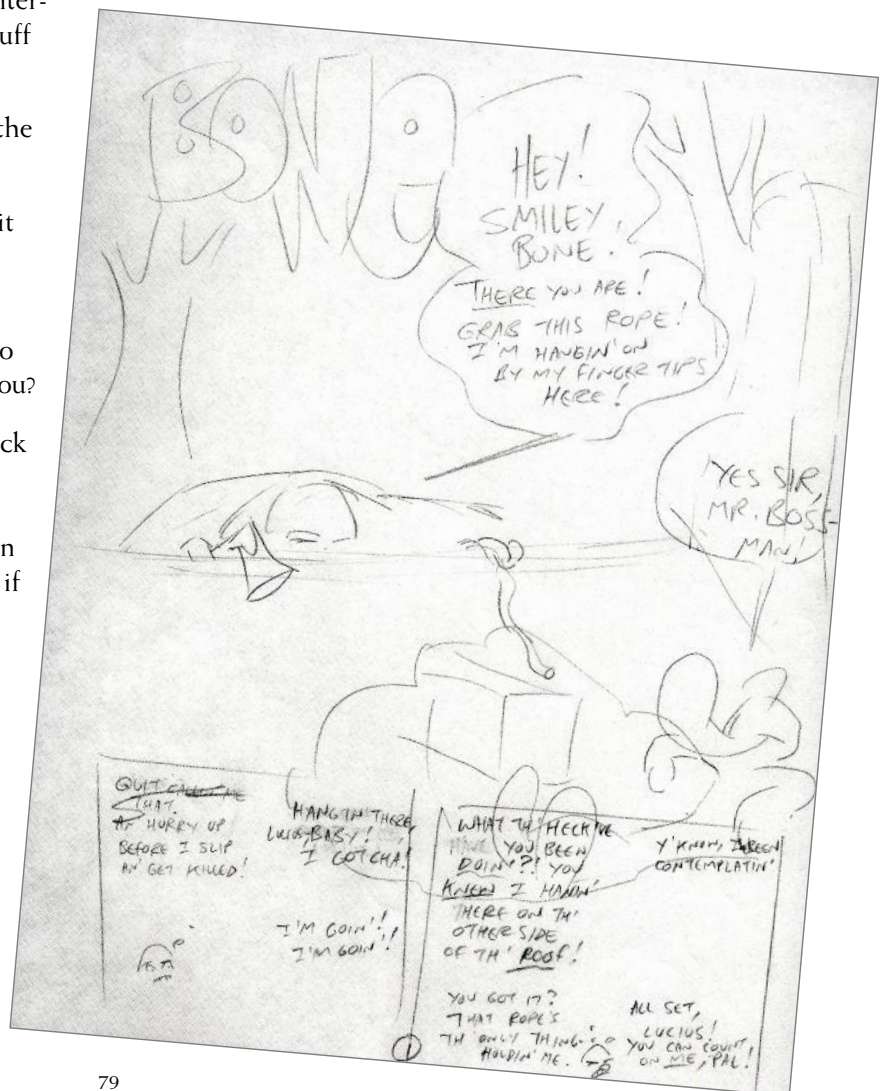 nter-
uff
the
it
o
ou?
ck
n
if
BONE
HEY!
SMILEY
BONE.
THERE YOU ARE!
GRAB THIS ROPE!
I'M HANGIN' ON
BY MY FINGER TIPS
HERE!
YES SIR,
MR. BOSS-
MAN!
QUIT CALLIN' ME
THAT.
AN' HURRY UP
BEFORE I SLIP
AN' GET KILLED!
HANG IN THERE,
LUCIUS, BABY!
I GOTCHA!
I'M GOIN'!
I'M GOIN'!
WHAT TH' HECK'VE
HAVE YOU BEEN
DOIN'?! YOU
KNEW I HANGIN'
THERE ON TH'
OTHER SIDE
OF TH' ROOF!
Y'KNOW, I BEEN
CONTEMPLATIN'
YOU GOT IT?
THAT ROPE'S
TH' ONLY THING
HOLDIN' ME.
ALL SET,
LUCIUS!
YOU CAN COUNT
ON ME, PAL!
1
79